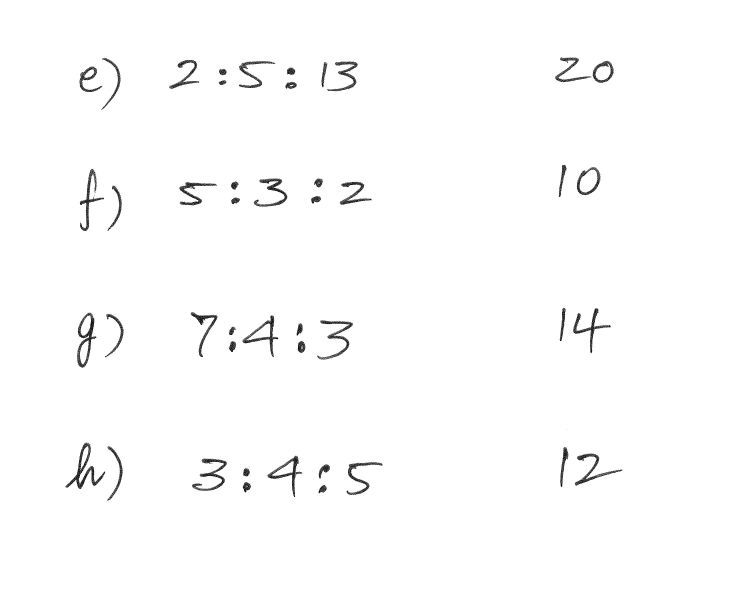 e) 2:5:13 20
f) 5:3:2 10
g) 7:4:3 14
h) 3:4:5 12